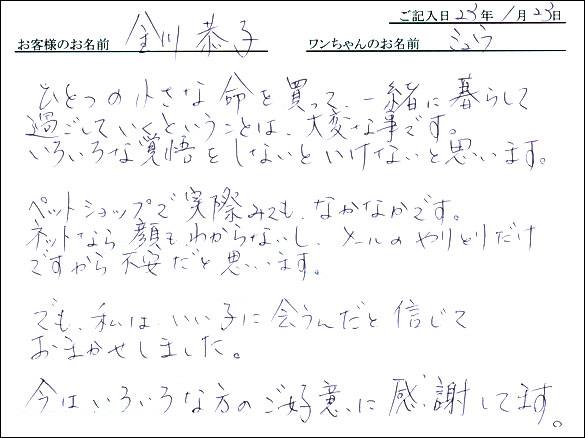 ご記入日 23年 1月 23日
お客様のお名前 金川 恭子 ワンちゃんのお名前 ミュウ
ひとつの小さな命を買って、一緒に暮らして
過ごしていくということは、大変な事です。
いろいろな覚悟をしないといけないと思います。
ペットショップで実際みても、なかなかです。
ネットなら顔もわからないし、メールのやりとりだけ
ですから不安だと思います。
でも、私は、いい子に会うんだと信じて
おまかせしました。
今はいろいろな方のご好意に感謝してます。